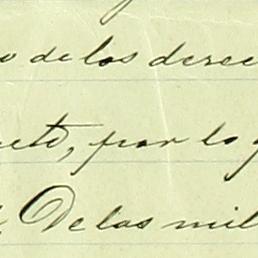 o de los derec
eto, por lo g
De las mil